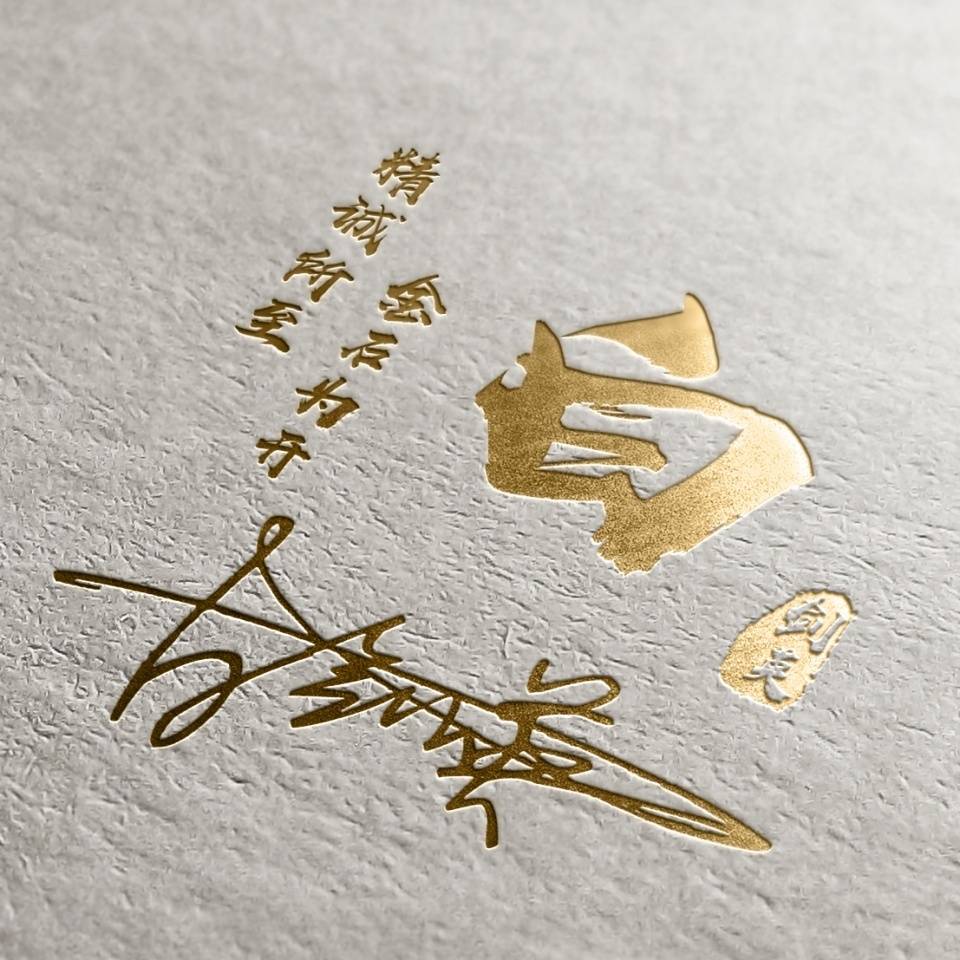 精诚所至
金石为开
白
剑英